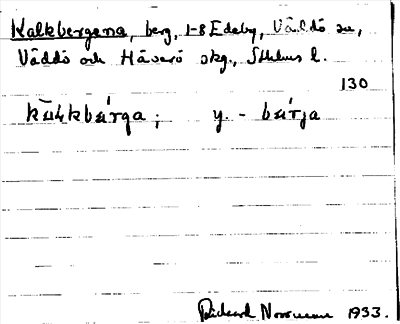 Kalkbergena, berg, 1-8 Edeby, Väddö sn,
Väddö och Häverö skg., Sthlms l.
130
kałkbærga; y. - bærja
Rickard Norrman 1933.